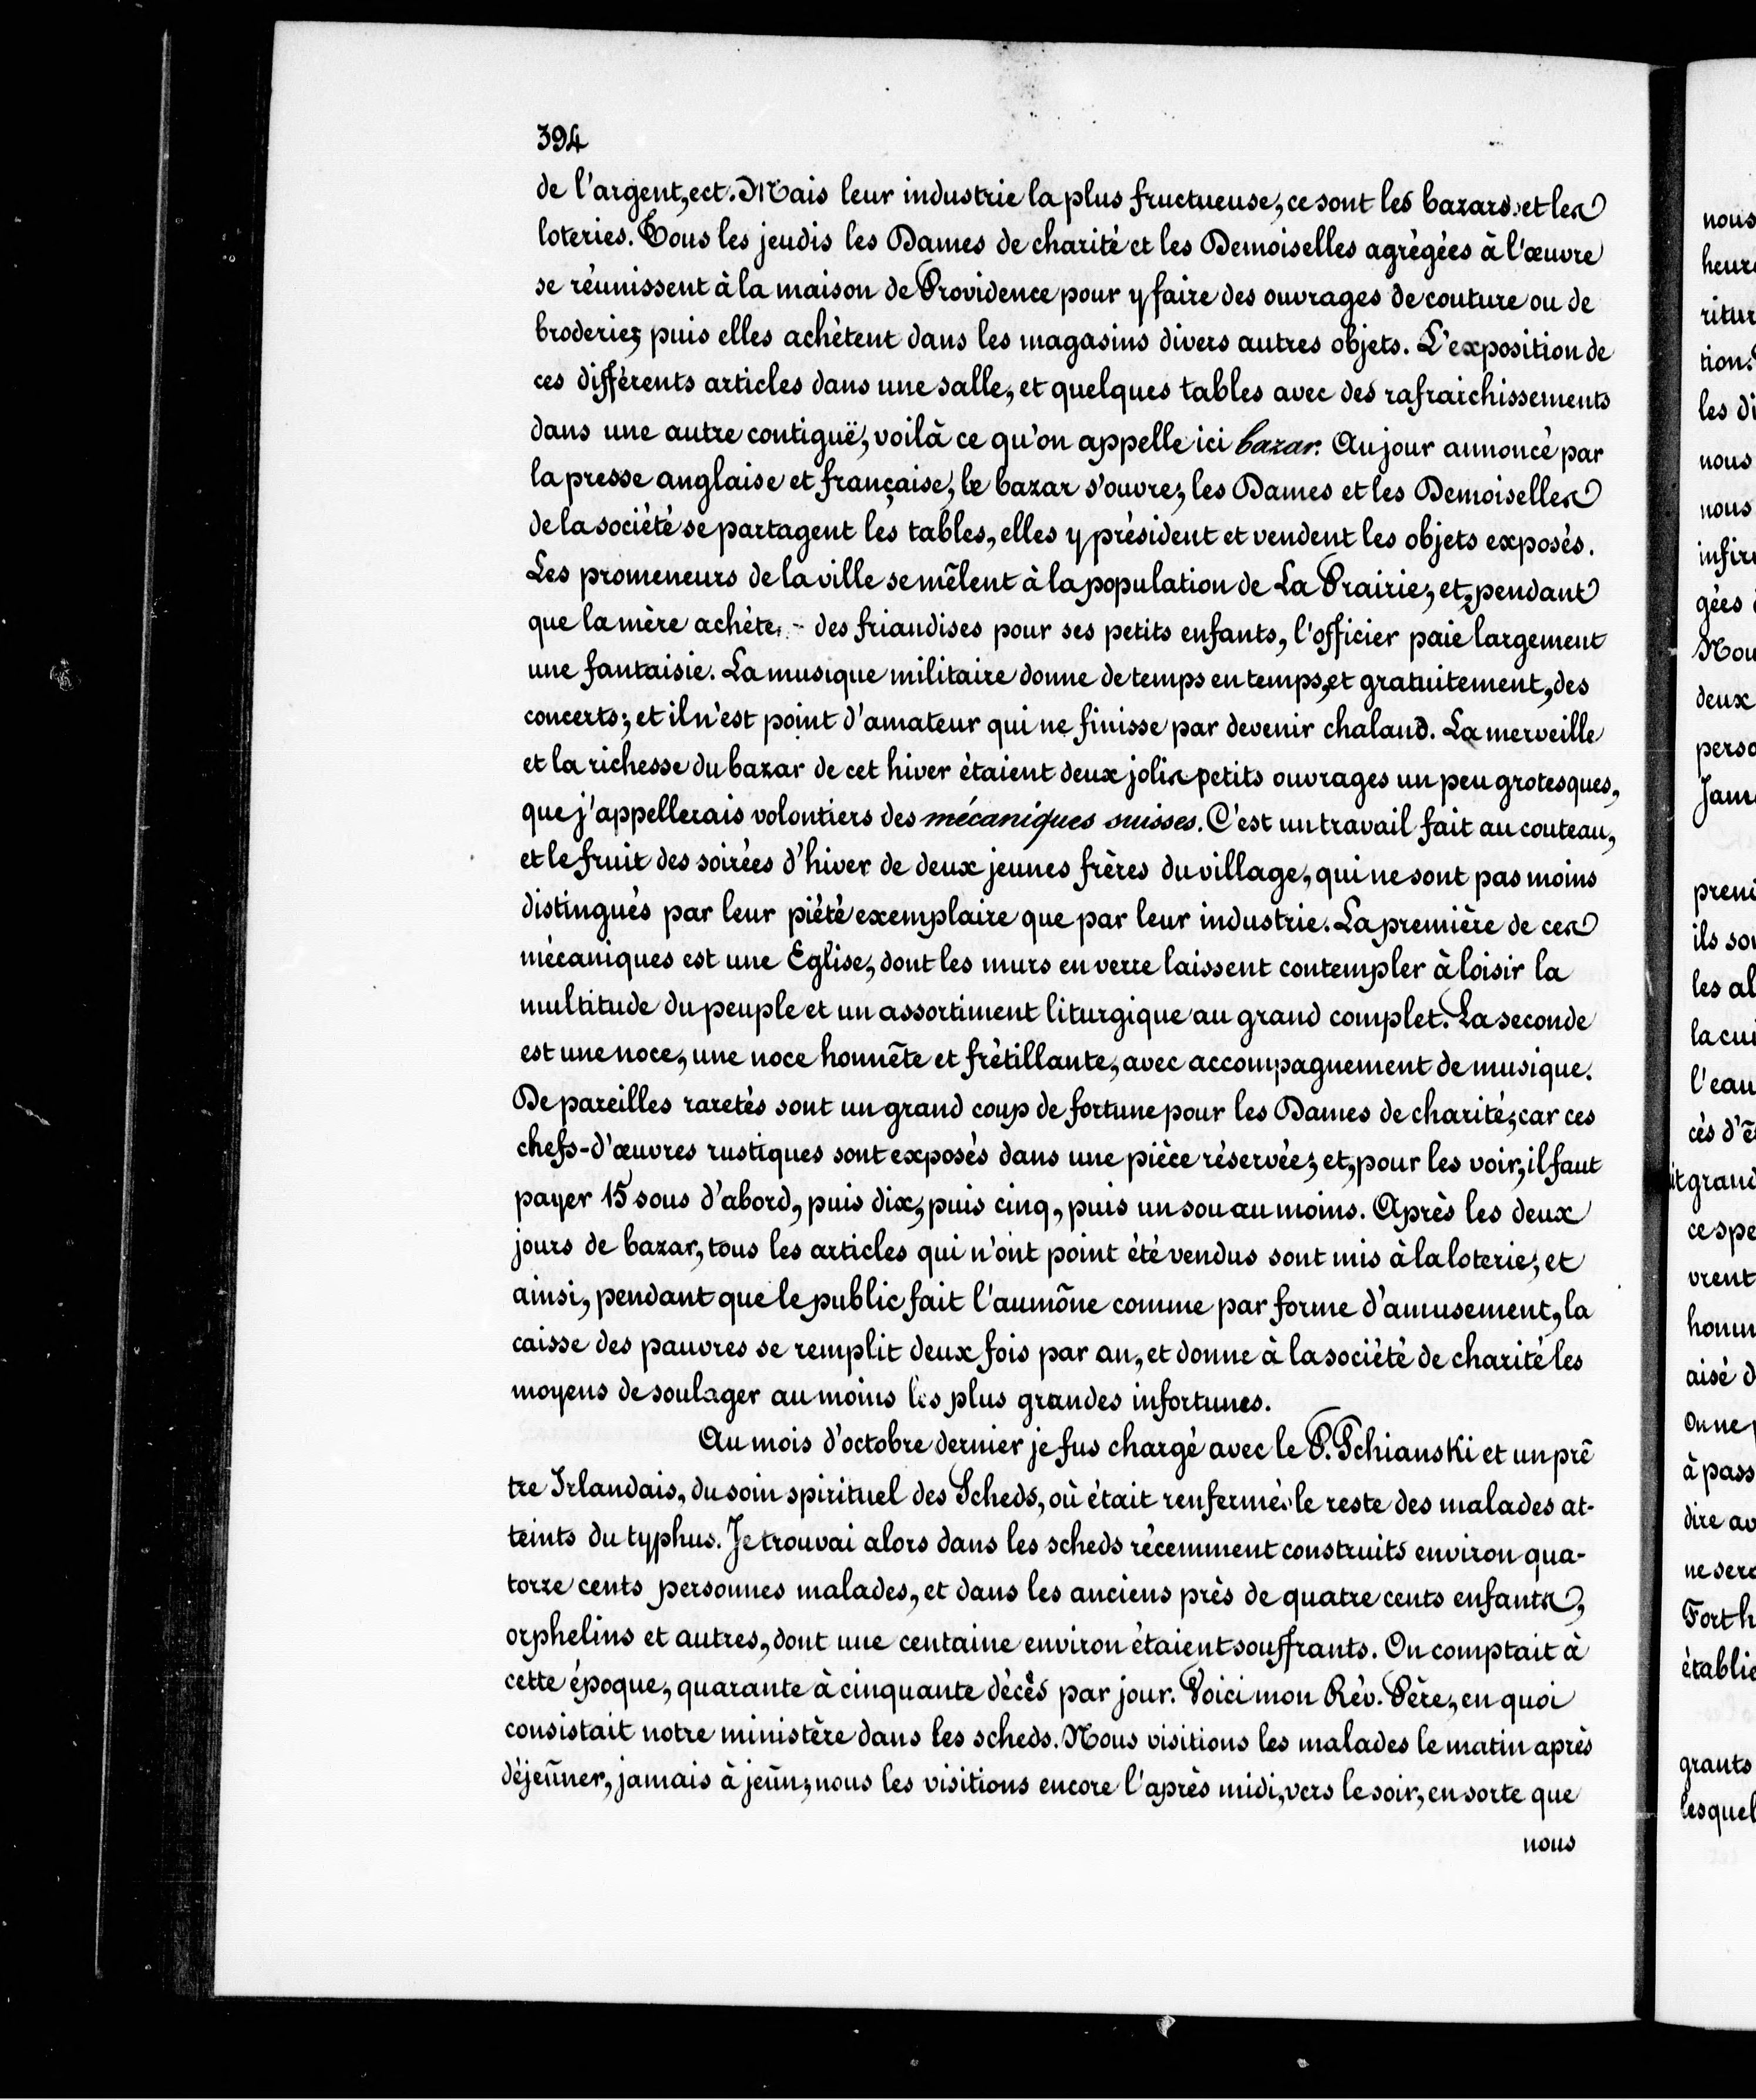 394
de l'argent, ect. Mais leur industrie la plus fructueuse, ce sont les bazars et les
loteries. Tous les jeudis les Dames de charité et les Demoiselles agrégées à l'œuvre
se réunissent à la maison de Providence pour y faire des ouvrages de couture ou de
broderie; puis elles achètent dans les magasins divers autres objets. L'exposition de
ces différents articles dans une salle, et quelques tables avec des rafraichissements
dans une autre contiguë, voilà ce qu'on appelle ici bazar. Au jour annoncé par
la presse anglaise et française, le bazar s'ouvre; les Dames et les Demoiselles
de la société se partagent les tables, elles y président et vendent les objets exposés.
Les promeneurs de la ville se mêlent à la population de La Prairie; et, pendant
que la mère achète - des friandises pour ses petits enfants, l'officier paie largement
une fantaisie. La musique militaire donne de temps en temps, et gratuitement, des
concerts; et il n'est point d'amateur qui ne finisse par devenir chaland. La merveille
et la richesse du bazar de cet hiver étaient deux jolis petits ouvrages un peu grotesques,
que j'appellerais volontiers des mécaniques suisses. C'est un travail fait au couteau,
et le fruit des soirées d'hiver de deux jeunes frères du village, qui ne sont pas moins
distingués par leur piété exemplaire que par leur industrie. La première de ces
mécaniques est une Eglise, dont les murs en verre laissent contempler à loisir la
multitude du peuple et un assortiment liturgique au grand complet. La seconde
est une noce, une noce honnête et frétillante, avec accompagnement de musique.
De pareilles raretés sont un grand coup de fortune pour les Dames de charité; car ces
chefs-d'œuvres rustiques sont exposés dans une pièce réservée; et, pour les voir, il faut
payer 15 sous d'abord, puis dix, puis cinq, puis un sou au moins. Après les deux
jours de bazar, tous les articles qui n'ont point été vendus sont mis à la loterie; et
ainsi, pendant que le public fait l'aumône comme par forme d'amusement, la
caisse des pauvres se remplit deux fois par an, et donne à la société de charité les
moyens de soulager au moins les plus grandes infortunes.
Au mois d'octobre dernier je fus chargé avec le P. Schianski et un prê
tre Irlandais, du soin spirituel des Scheds, où était renfermé le reste des malades at-
teints du typhus. Je trouvai alors dans les scheds récemment construits environ qua-
torze cents personnes malades, et dans les anciens près de quatre cents enfants,
orphelins et autres, dont une centaine environ étaient souffrants. On comptait à
cette époque, quarante à cinquante décès par jour. Voici mon Rév. Père, en quoi
consistait notre ministère dans les scheds. Nous visitions les malades le matin après
déjeûner, jamais à jeûn; nous les visitions encore l'après midi, vers le soir, en sorte que
nous